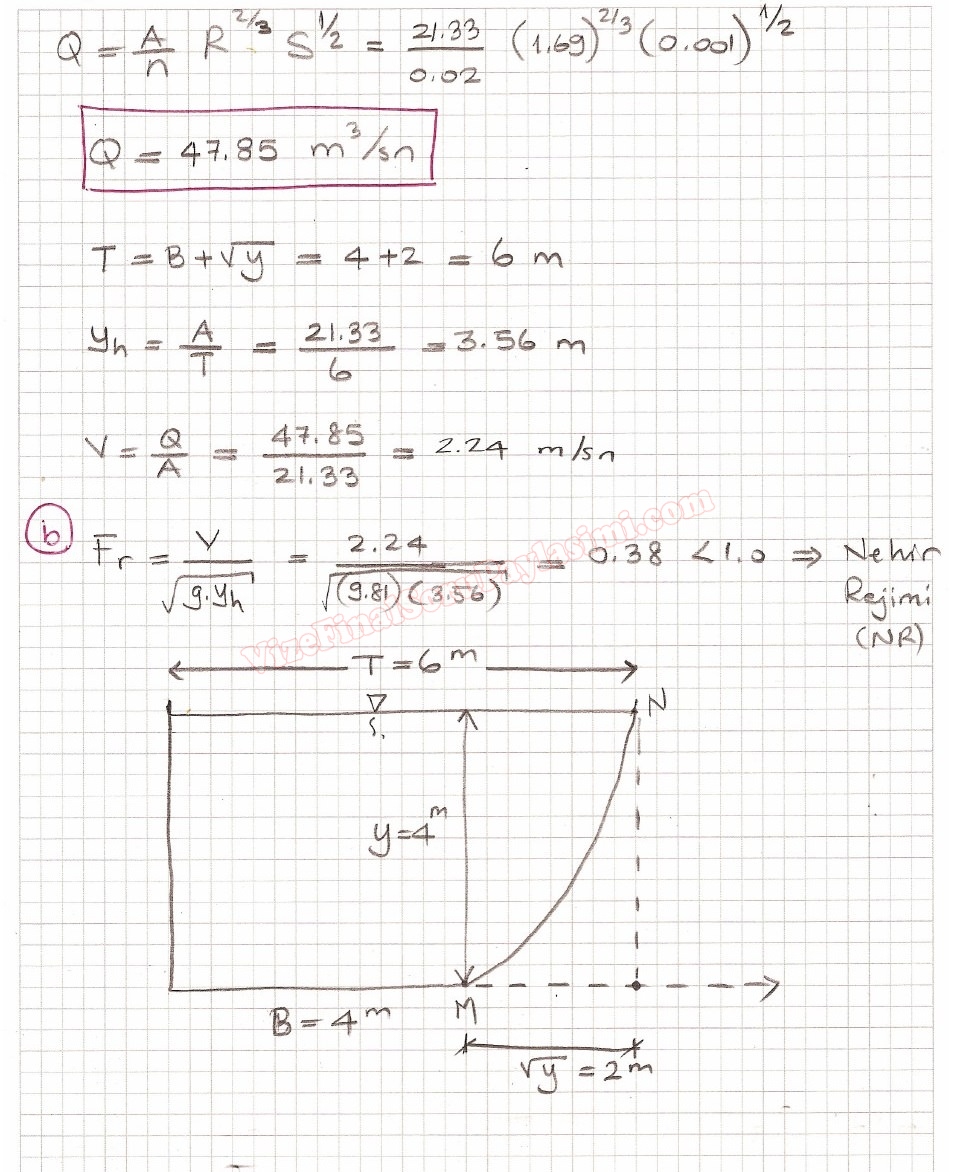 Q = A/n R^2/3 S^1/2 = 21.33/0.02 (1.69)^2/3 (0.001)^1/2
Q = 47.85 m³/sn
T = B + √y = 4 + 2 = 6 m
yh = A/T = 21.33/6 = 3.56 m
V = Q/A = 47.85/21.33 = 2.24 m/sn
b Fr = V/√g.yh = 2.24/√(9.81)(3.56) = 0.38 < 1.0 ⇒ Nehir
Rejimi
(NR)
VizeFinalSoruPaylasimi.com
T = 6 m
N
S.
y = 4 m
M
B = 4 m
√y = 2 m